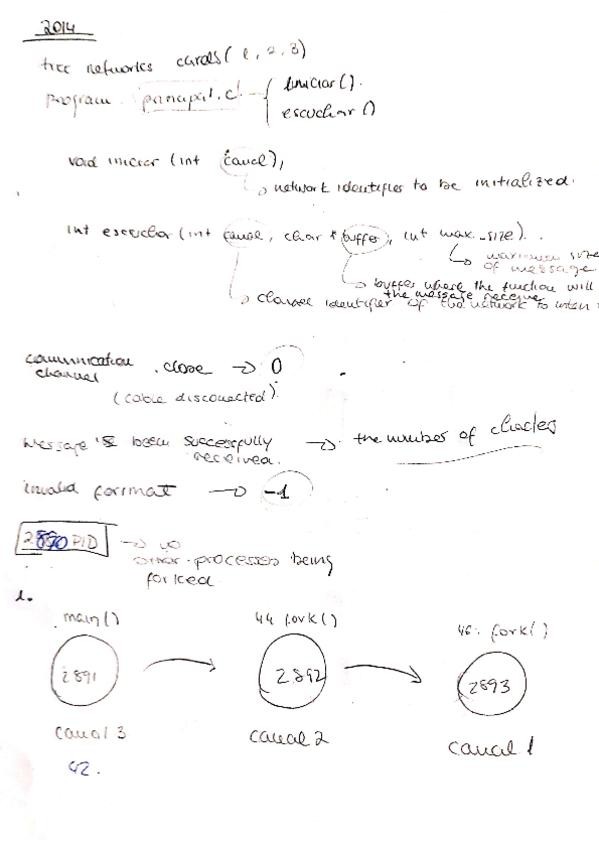 2014
tree networks canals (1, 2, 3)
program principal.c { iniciar().
escuchar()
void iniciar (int canal),
→ network identifier to be initialized.
int escuchar (int canal, char * buffer, int max_size).
→ maximum size of message
→ buffer where the function will the message receive
→ channel identifier of the network to listen
communication channel . close → 0
(cable disconnected).
Message been successfully received. → the number of
invalid format → -1
2890 PID → no
other processes being
forked
1.
main() 44 fork() 46. fork()
2891 2892 2893
canal 3 canal 2 canal 1
42.